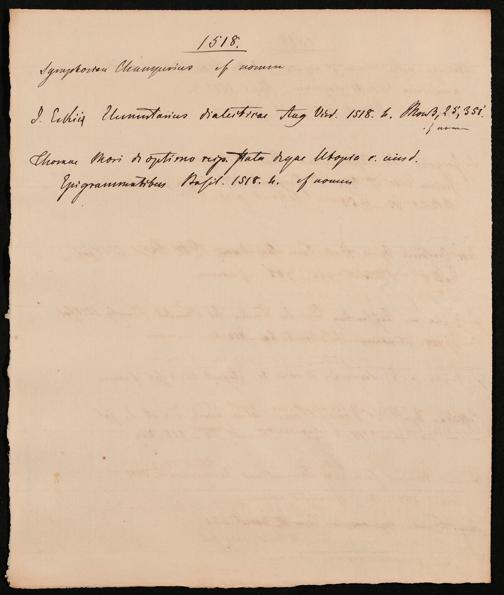 1518.
Symphorien Champerius cf nomen
J. Eckii Elementarius dialecticae Aug Vind. 1518. 4. 25, 351.
cf nomen
Thomae Mori de optimo reip. statu deque Utopia c. eiusd.
Epigrammatibus Basil. 1518. 4. cf nomen